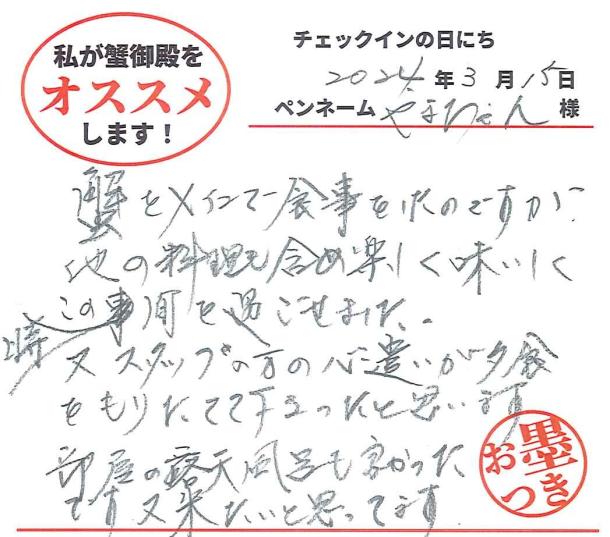 私が蟹御殿を
オススメ
します!
チェックインの日にち
2024年3月15日
ペンネーム 様
蟹をメインで食事をしたのですが
他の料理も含め楽しく味いしく
この時間を過ごせました。
又スタッフの方の心遣いが夕食
をもりたてて下さったと思います
部屋の露天風呂も良かった
です又来たいと思ってます
お墨
つき